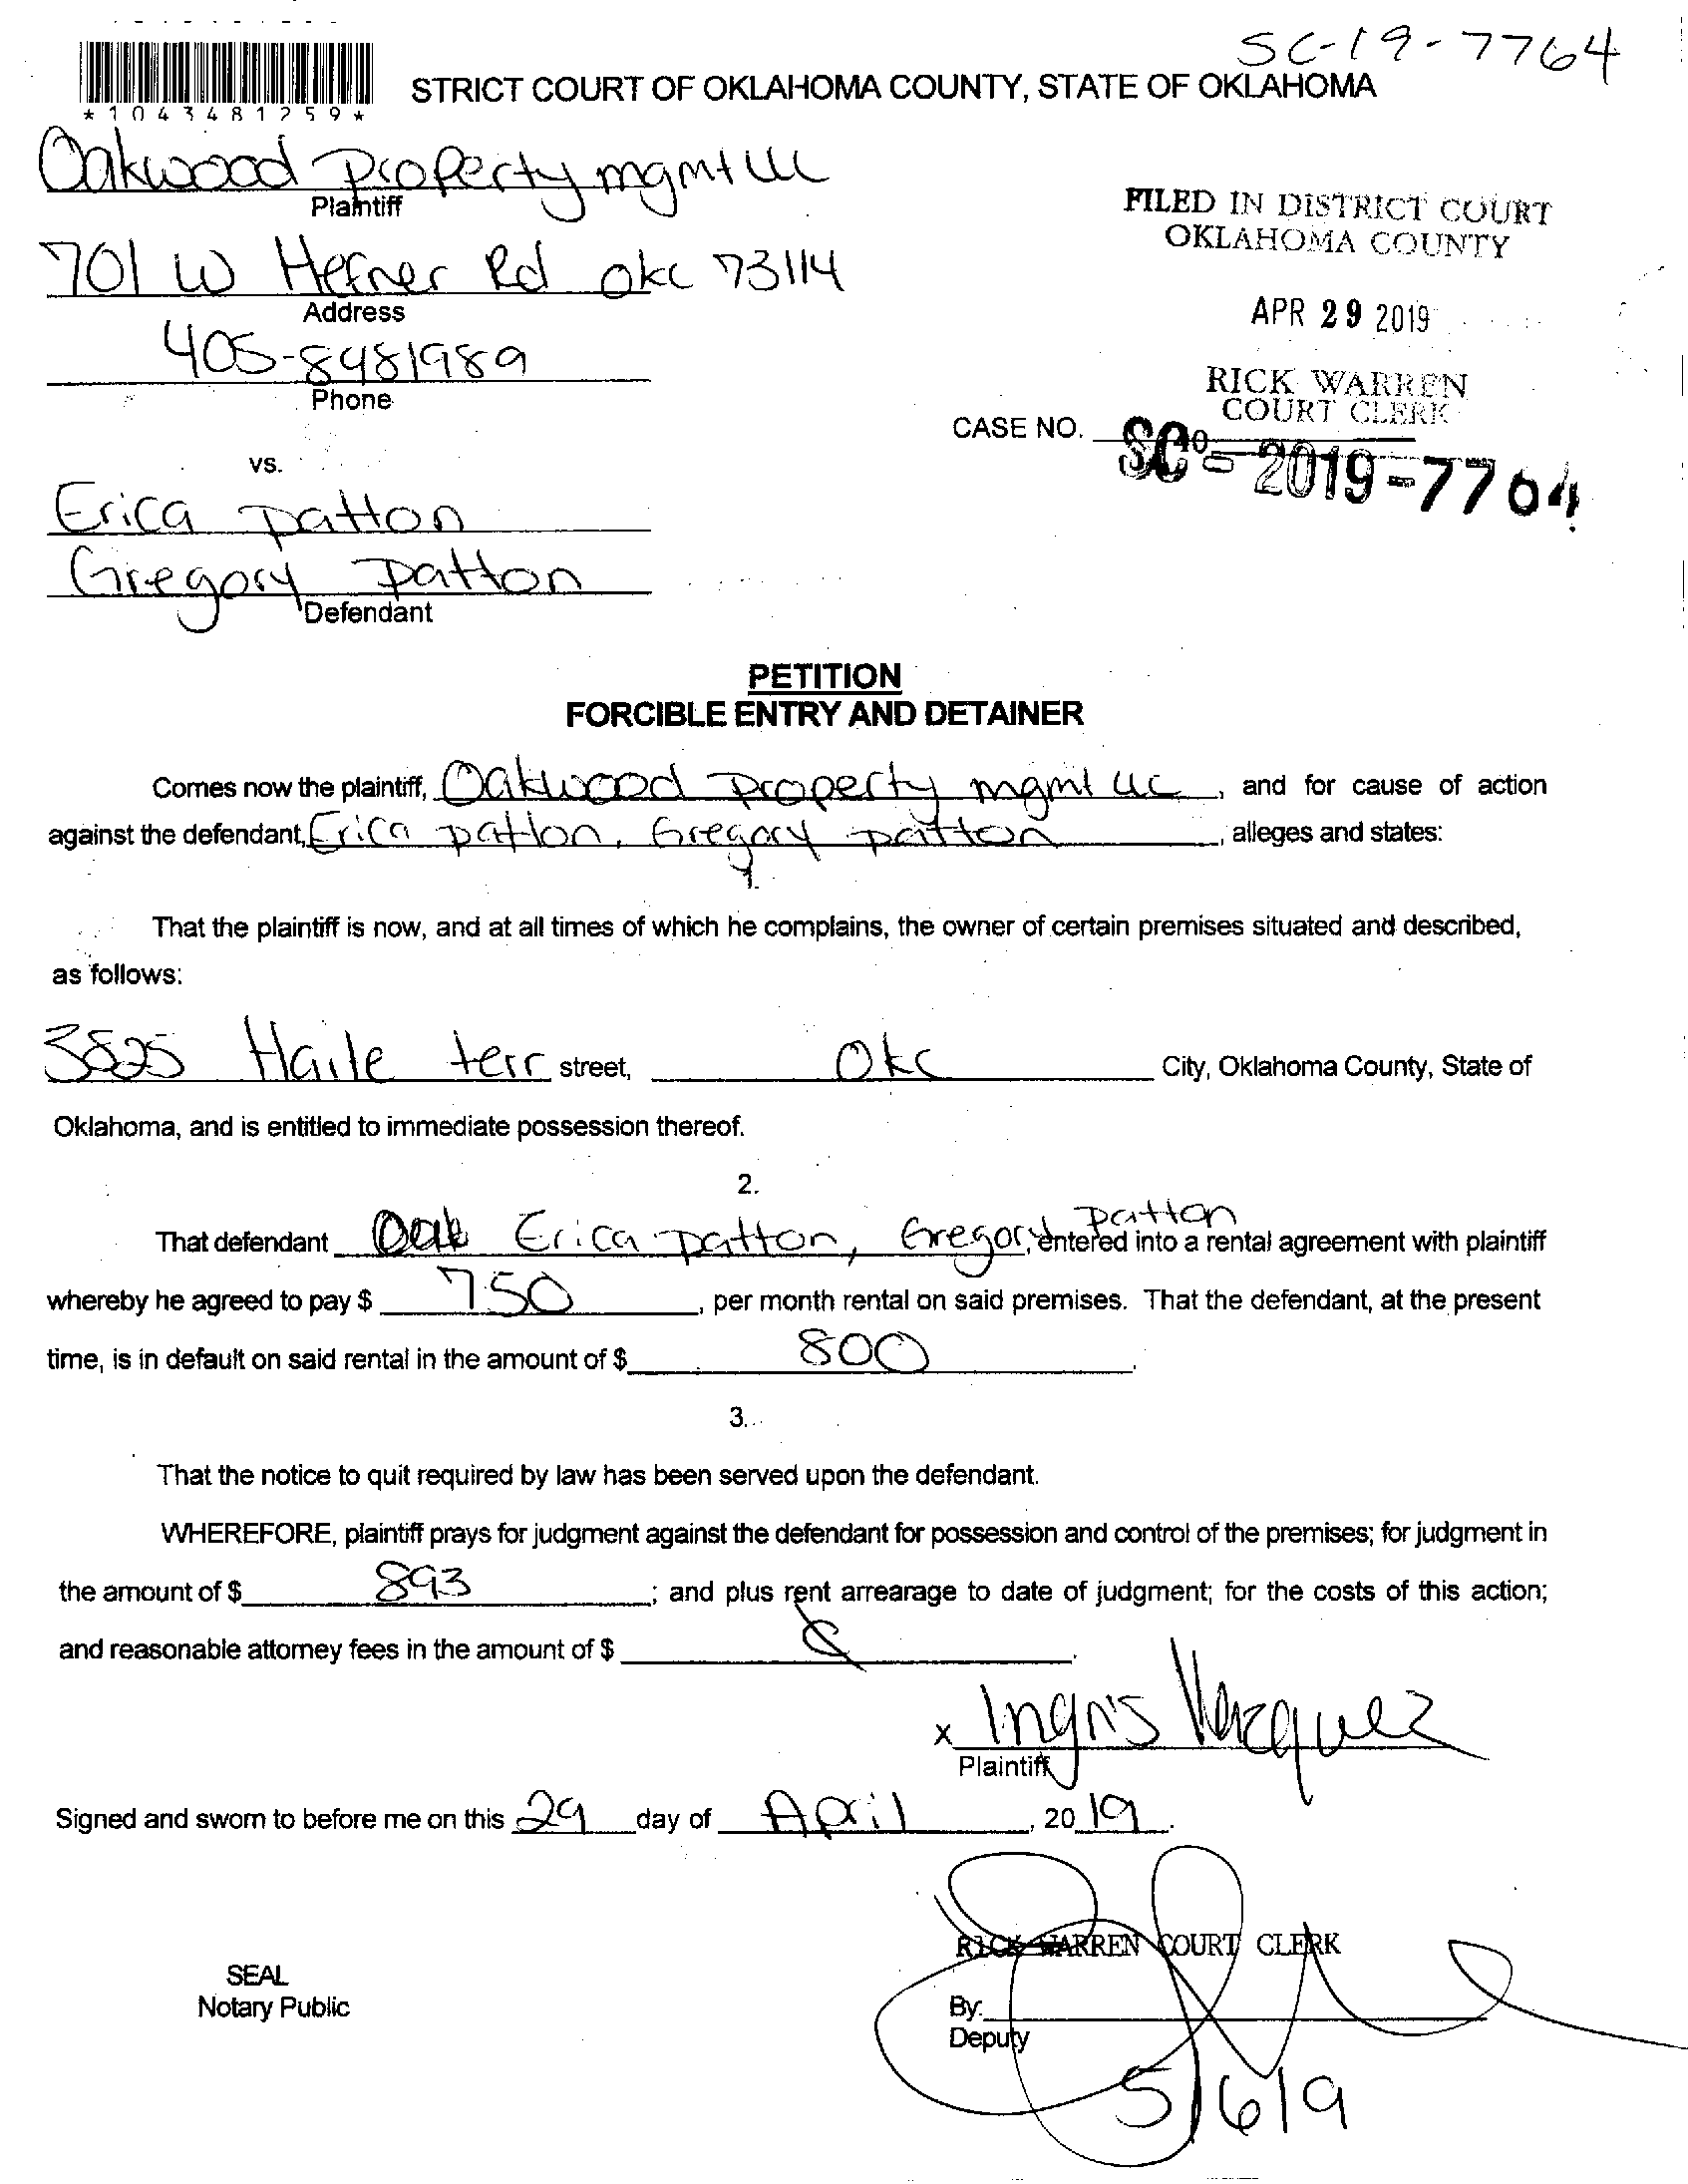 SC-19-7764
*1043481259*
STRICT COURT OF OKLAHOMA COUNTY, STATE OF OKLAHOMA
Oakwood Property mgmt LLC
Plaintiff
FILED IN DISTRICT COURT
OKLAHOMA COUNTY
701 W Hefner Rd okc 73114
Address
APR 29 2019
405-8481989
Phone
RICK WARREN
COURT CLERK
CASE NO.
SC - 2019 - 7764
vs.
Erica patton
Gregory Patton
Defendant
PETITION
FORCIBLE ENTRY AND DETAINER
Comes now the plaintiff, Oakwood Property mgmt LLC, and for cause of action
against the defendant, Erica patton, Gregory patton, alleges and states:
1.
That the plaintiff is now, and at all times of which he complains, the owner of certain premises situated and described,
as follows:
3825 Haile terr street, Okc City, Oklahoma County, State of
Oklahoma, and is entitled to immediate possession thereof.
2.
That defendant Erica patton, Gregory patton, entered into a rental agreement with plaintiff
whereby he agreed to pay $ 750, per month rental on said premises. That the defendant, at the present
time, is in default on said rental in the amount of $ 800.
3.
That the notice to quit required by law has been served upon the defendant.
WHEREFORE, plaintiff prays for judgment against the defendant for possession and control of the premises; for judgment in
the amount of $ 893; and plus rent arrearage to date of judgment; for the costs of this action;
and reasonable attorney fees in the amount of $
x Ingris Vazquez
Plaintiff
Signed and sworn to before me on this 29 day of April, 2019.
RICK WARREN COURT CLERK
SEAL
Notary Public
By:
Deputy
5/6/19